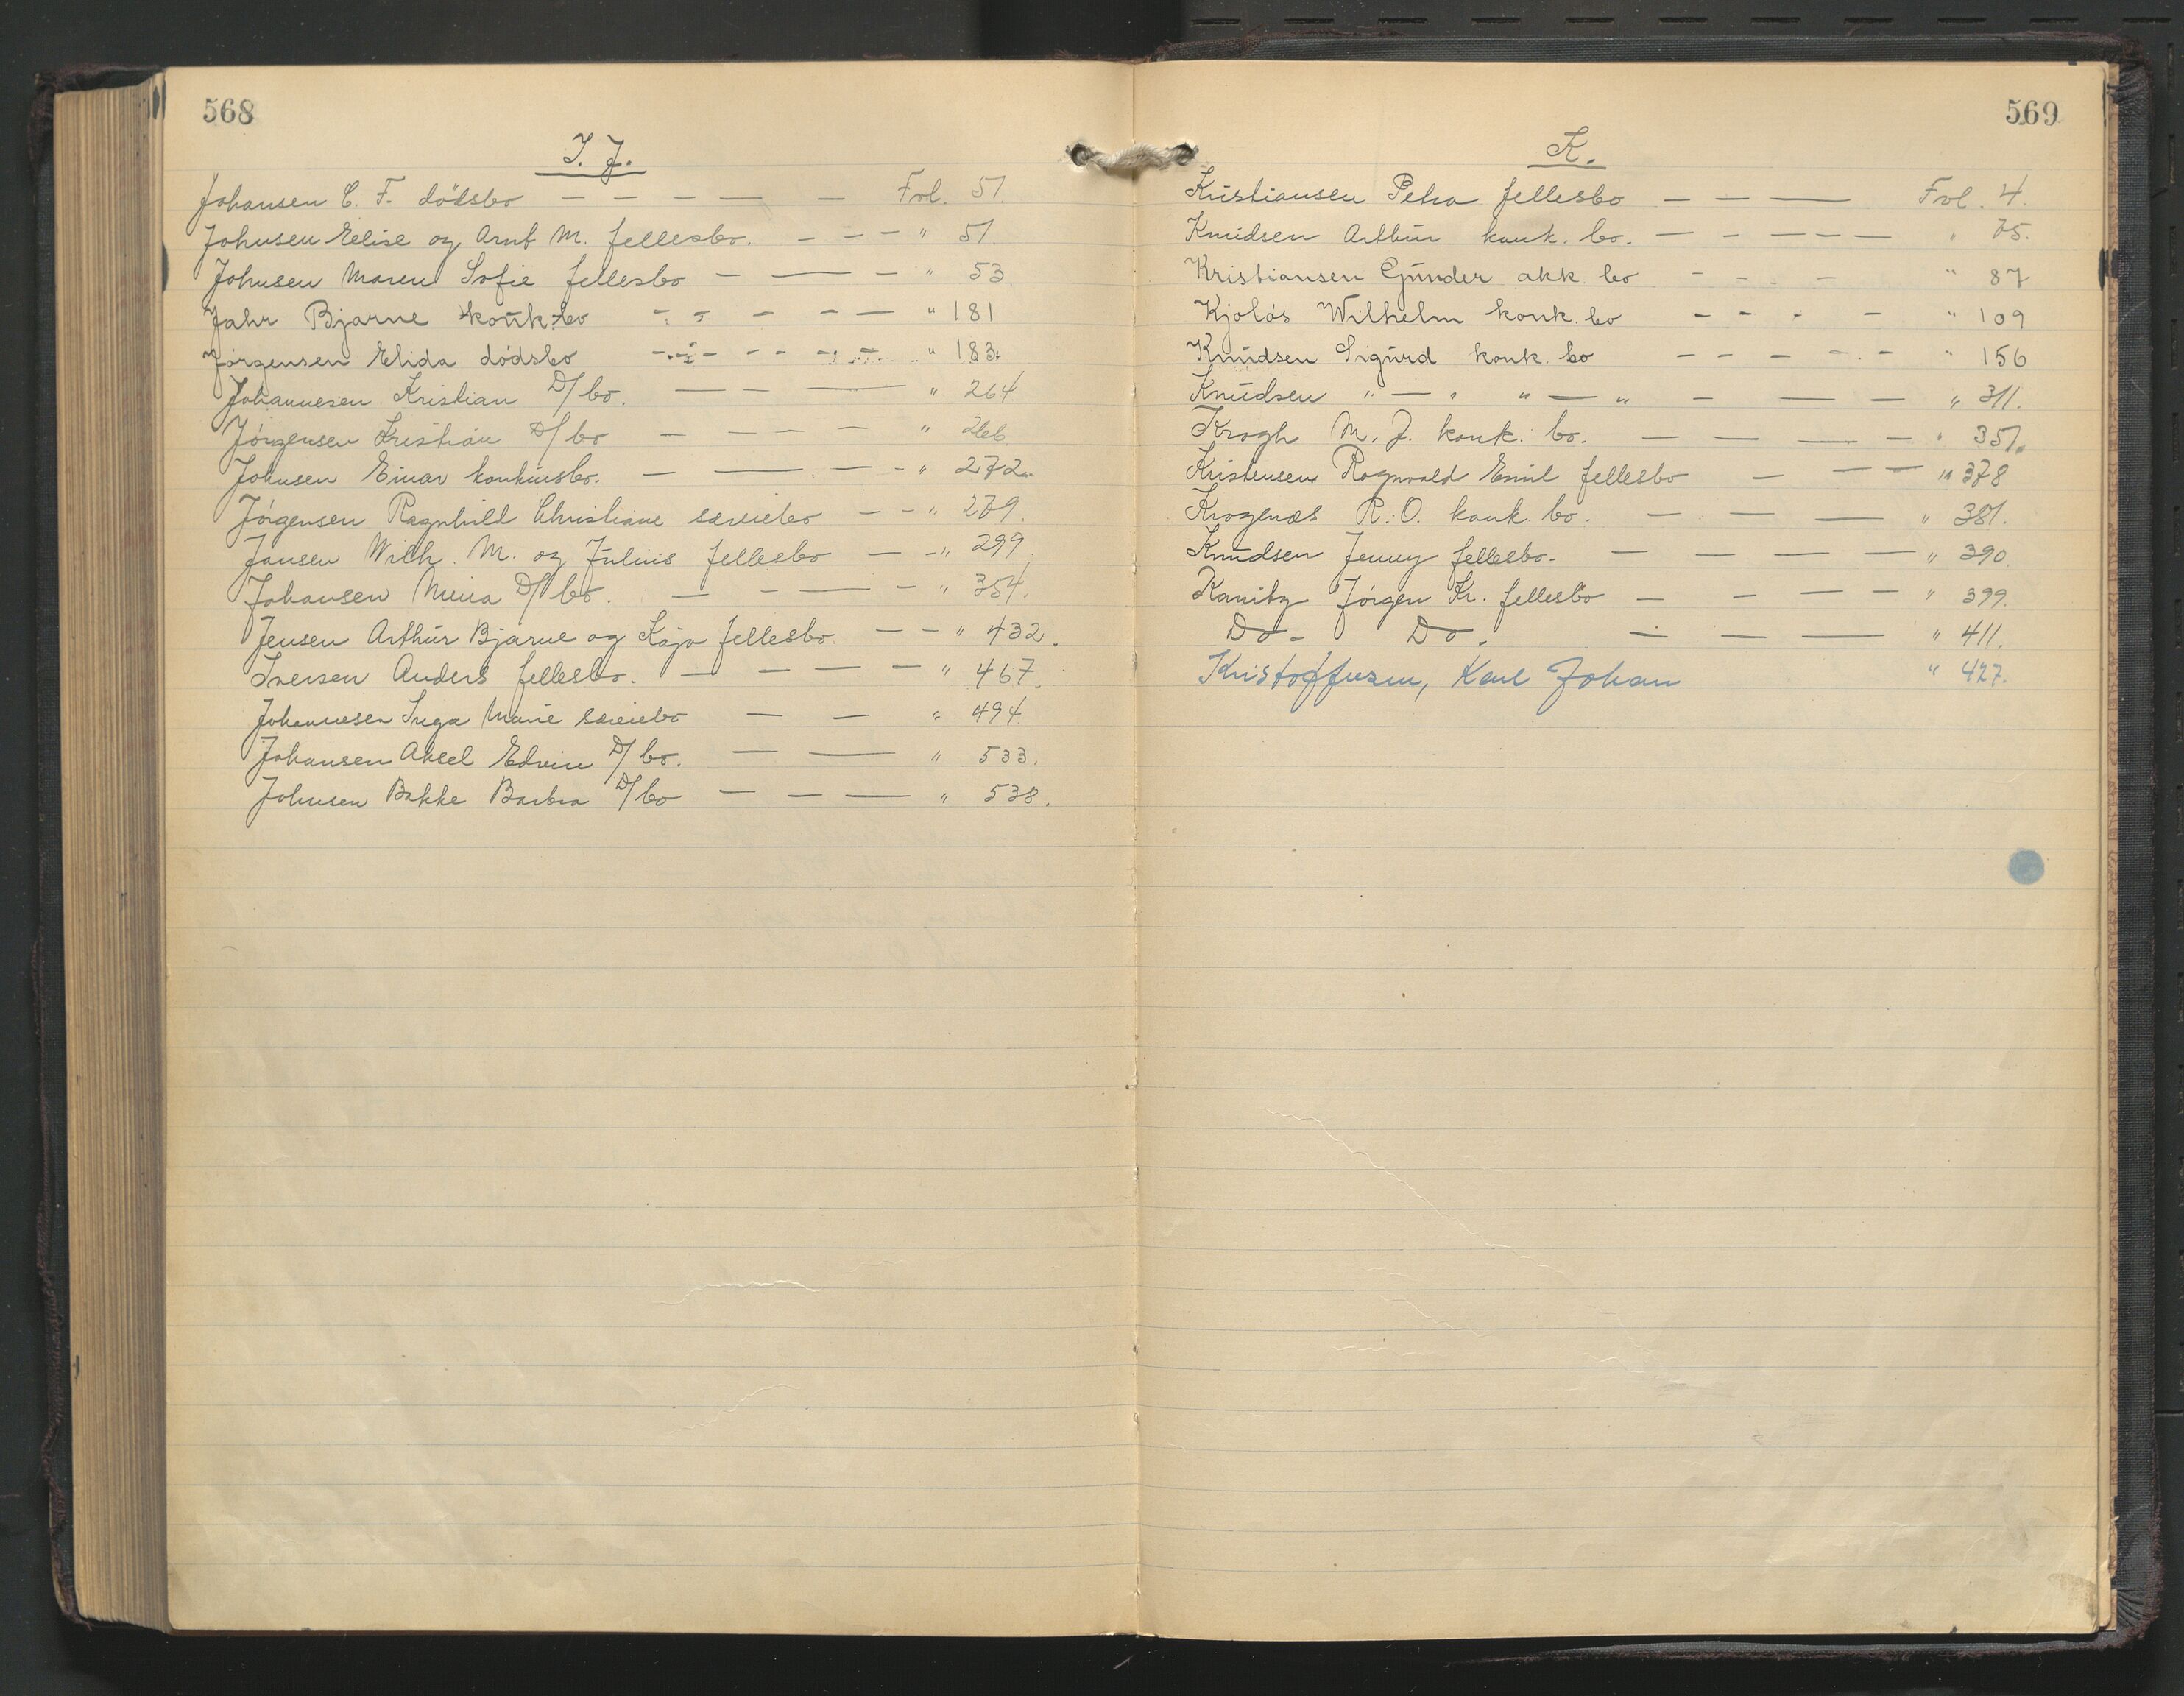 568
I. J.
Johansen C. F. dödsbo — — — — — — Fol. 51.
Johnsen Elise og Arnt M. fellesbo. — — — " 51.
Johnsen Maren Sofie fellesbo — — — " 53
Jahr Bjarne konk.bo — — — — — " 181
Jörgensen Elida dödsbo — — — — — — " 183.
Johannesen Kristian D/bo. — — — " 264
Jörgensen Kristian D/bo — — — — " 266.
Johnsen Einar konkursbo. — — — - " 272.
Jörgensen Ragnhild Christiane særeiebo — — " 279.
Jansen Wilh. M. og Julius fellesbo — - " 299.
Johansen Mina D/bo. — - — - " 354.
Jensen Arthur Bjarne og Kaja fellesbo. — — " 432.
Iversen Anders fellesbo. — — — — " 467.
Johannesen Inga Marie særeiebo — — " 494.
Johansen Aksel Edvin D/bo. — — " 533.
Johnsen Bakke Barbra D/bo — — — " 538.
569
K.
Kristiansen Petra fellesbo — — — Fol. 4.
Knudsen Arthur konk. bo. — - — — — " 75.
Kristiansen Gunder akk. bo - - - — " 87
Kjolås Wilhelm konk. bo - - - — " 109
Knudsen Sigurd konk. bo — — — — - " 156
Knudsen " — " " — " - — — " 311.
Krogh M. J. konk. bo. — — — — " 351.
Kristensen Ragnvald Emil fellesbo — — — " 378
Krogenæs R. O. konk. bo. — — — " 381.
Knudsen Jenny fellesbo. — — — — " 390.
Kanitz Jörgen Kr. fellesbo — — — — " 399.
Do. Do. — — — " 411.
Kristoffersen, Karl Johan " 427.